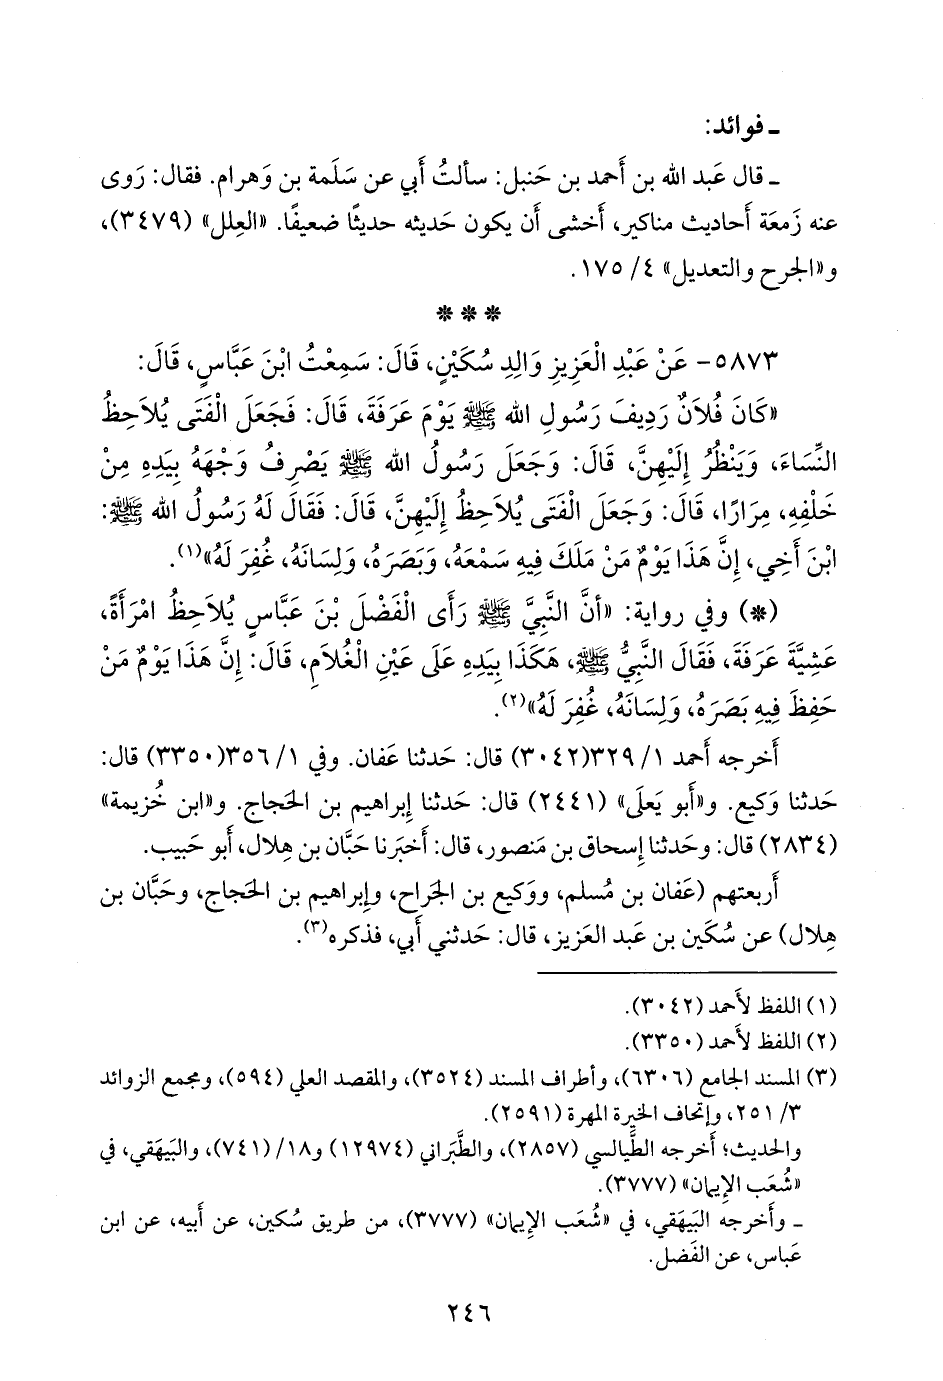 ـ فوائد:
ـ قال عَبد الله بن أَحمد بن حَنبل: سأَلتُ أَبي عن سَلَمة بن وَهرام. فقال: رَوى
عنه زَمعَة أَحاديث مناكير، أَخشى أَن يكون حَديثه حديثًا ضعيفًا. «العِلل» (٣٤٧٩)،
و«الجرح والتعديل» ٤/ ١٧٥.
* * *
٥٨٧٣- عَنْ عَبْدِ الْعَزِيزِ وَالِدِ سُكَيْنٍ، قَالَ: سَمِعْتُ ابْنَ عَبَّاسٍ، قَالَ:
«كَانَ فُلَانٌ رَدِيفَ رَسُولِ الله ﷺ يَوْمَ عَرَفَةَ، قَالَ: فَجَعَلَ الْفَتَى يُلَاحِظُ
النِّسَاءَ، وَيَنْظُرُ إِلَيْهِنَّ، قَالَ: وَجَعَلَ رَسُولُ الله ﷺ يَصْرِفُ وَجْهَهُ بِيَدِهِ مِنْ
خَلْفِهِ، مِرَارًا، قَالَ: وَجَعَلَ الْفَتَى يُلَاحِظُ إِلَيْهِنَّ، قَالَ: فَقَالَ لَهُ رَسُولُ الله ﷺ:
ابْنَ أَخِي، إِنَّ هَذَا يَوْمٌ مَنْ مَلَكَ فِيهِ سَمْعَهُ، وَبَصَرَهُ، وَلِسَانَهُ، غُفِرَ لَهُ»(١).
(*) وفي رواية: «أَنَّ النَّبِيَّ ﷺ رَأَى الْفَضْلَ بْنَ عَبَّاسٍ يُلَاحِظُ امْرَأَةً،
عَشِيَّةَ عَرَفَةَ، فَقَالَ النَّبِيُّ ﷺ، هَكَذَا بِيَدِهِ عَلَى عَيْنِ الْغُلَامِ، قَالَ: إِنَّ هَذَا يَوْمٌ مَنْ
حَفِظَ فِيهِ بَصَرَهُ، وَلِسَانَهُ، غُفِرَ لَهُ»(٢).
أَخرجه أَحمد ١/ ٣٢٩(٣٠٤٢) قال: حَدثنا عَفان. وفي ١/ ٣٥٦(٣٣٥٠) قال:
حَدثنا وَكيع. و«أَبو يَعلَى» (٢٤٤١) قال: حَدثنا إِبراهيم بن الحَجاج. و«ابن خُزيمة»
(٢٨٣٤) قال: وحَدثنا إِسحاق بن مَنصور، قال: أَخبَرنا حَبَّان بن هِلال، أَبو حَبيب.
أَربعتهم (عَفان بن مُسلم، ووَكيع بن الجَراح، وإِبراهيم بن الحَجاج، وحَبَّان بن
هِلال) عن سُكَين بن عَبد العَزيز، قال: حَدثني أَبي، فذكره(٣).
(١) اللفظ لأَحمد (٣٠٤٢).
(٢) اللفظ لأَحمد (٣٣٥٠).
(٣) المسند الجامع (٦٣٠٦)، وأَطراف المسند (٣٥٢٤)، والمقصد العلي (٥٩٤)، ومجمع الزوائد
٣/ ٢٥١، وإِتحاف الخِيرَة المهرة (٢٥٩١).
والحديث؛ أَخرجه الطَّيالسي (٢٨٥٧)، والطَّبَراني (١٢٩٧٤) و١٨/ (٧٤١)، والبَيهَقي، في
«شُعَب الإِيمان» (٣٧٧٧).
ـ وأَخرجه البَيهَقي، في «شُعَب الإِيمان» (٣٧٧٧)، من طريق سُكين، عن أَبيه، عن ابن
عَباس، عن الفَضل.
٢٤٦